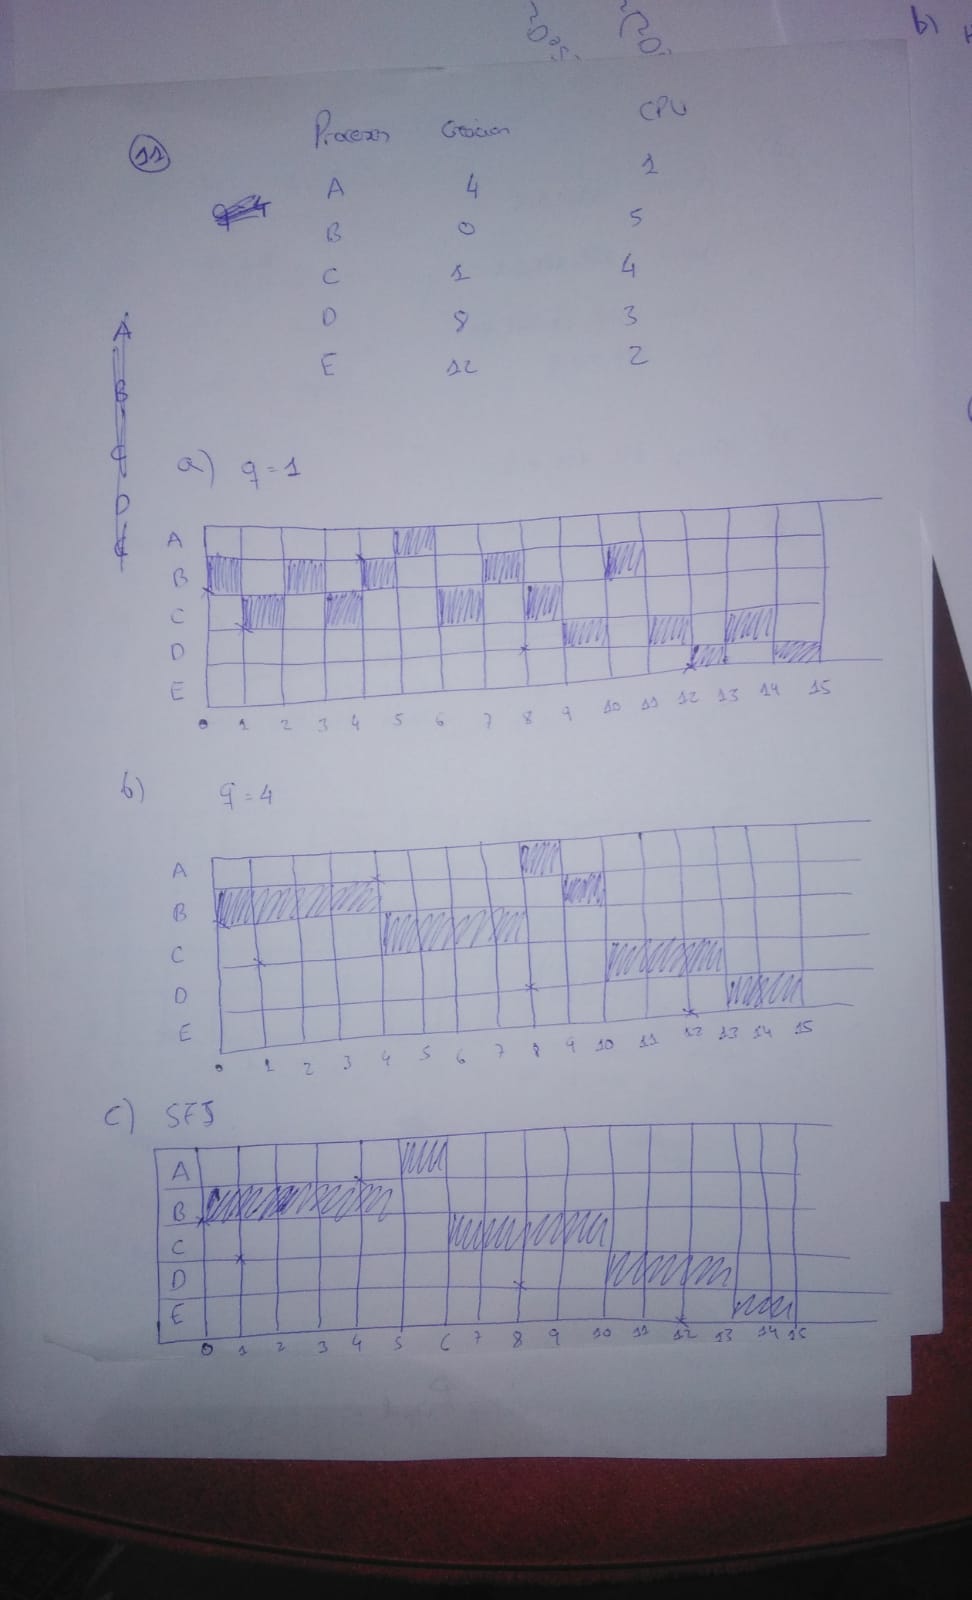 b)
11 Procesos Creacion CPU
A 4 1
B 0 5
C 1 4
D 8 3
E 12 2
A
B
C
D
E
a) q=1
A
B
C
D
E
0 1 2 3 4 5 6 7 8 9 10 11 12 13 14 15
b) q=4
A
B
C
D
E
0 1 2 3 4 5 6 7 8 9 10 11 12 13 14 15
c) SFJ
A
B
C
D
E
0 1 2 3 4 5 6 7 8 9 10 11 12 13 14 15